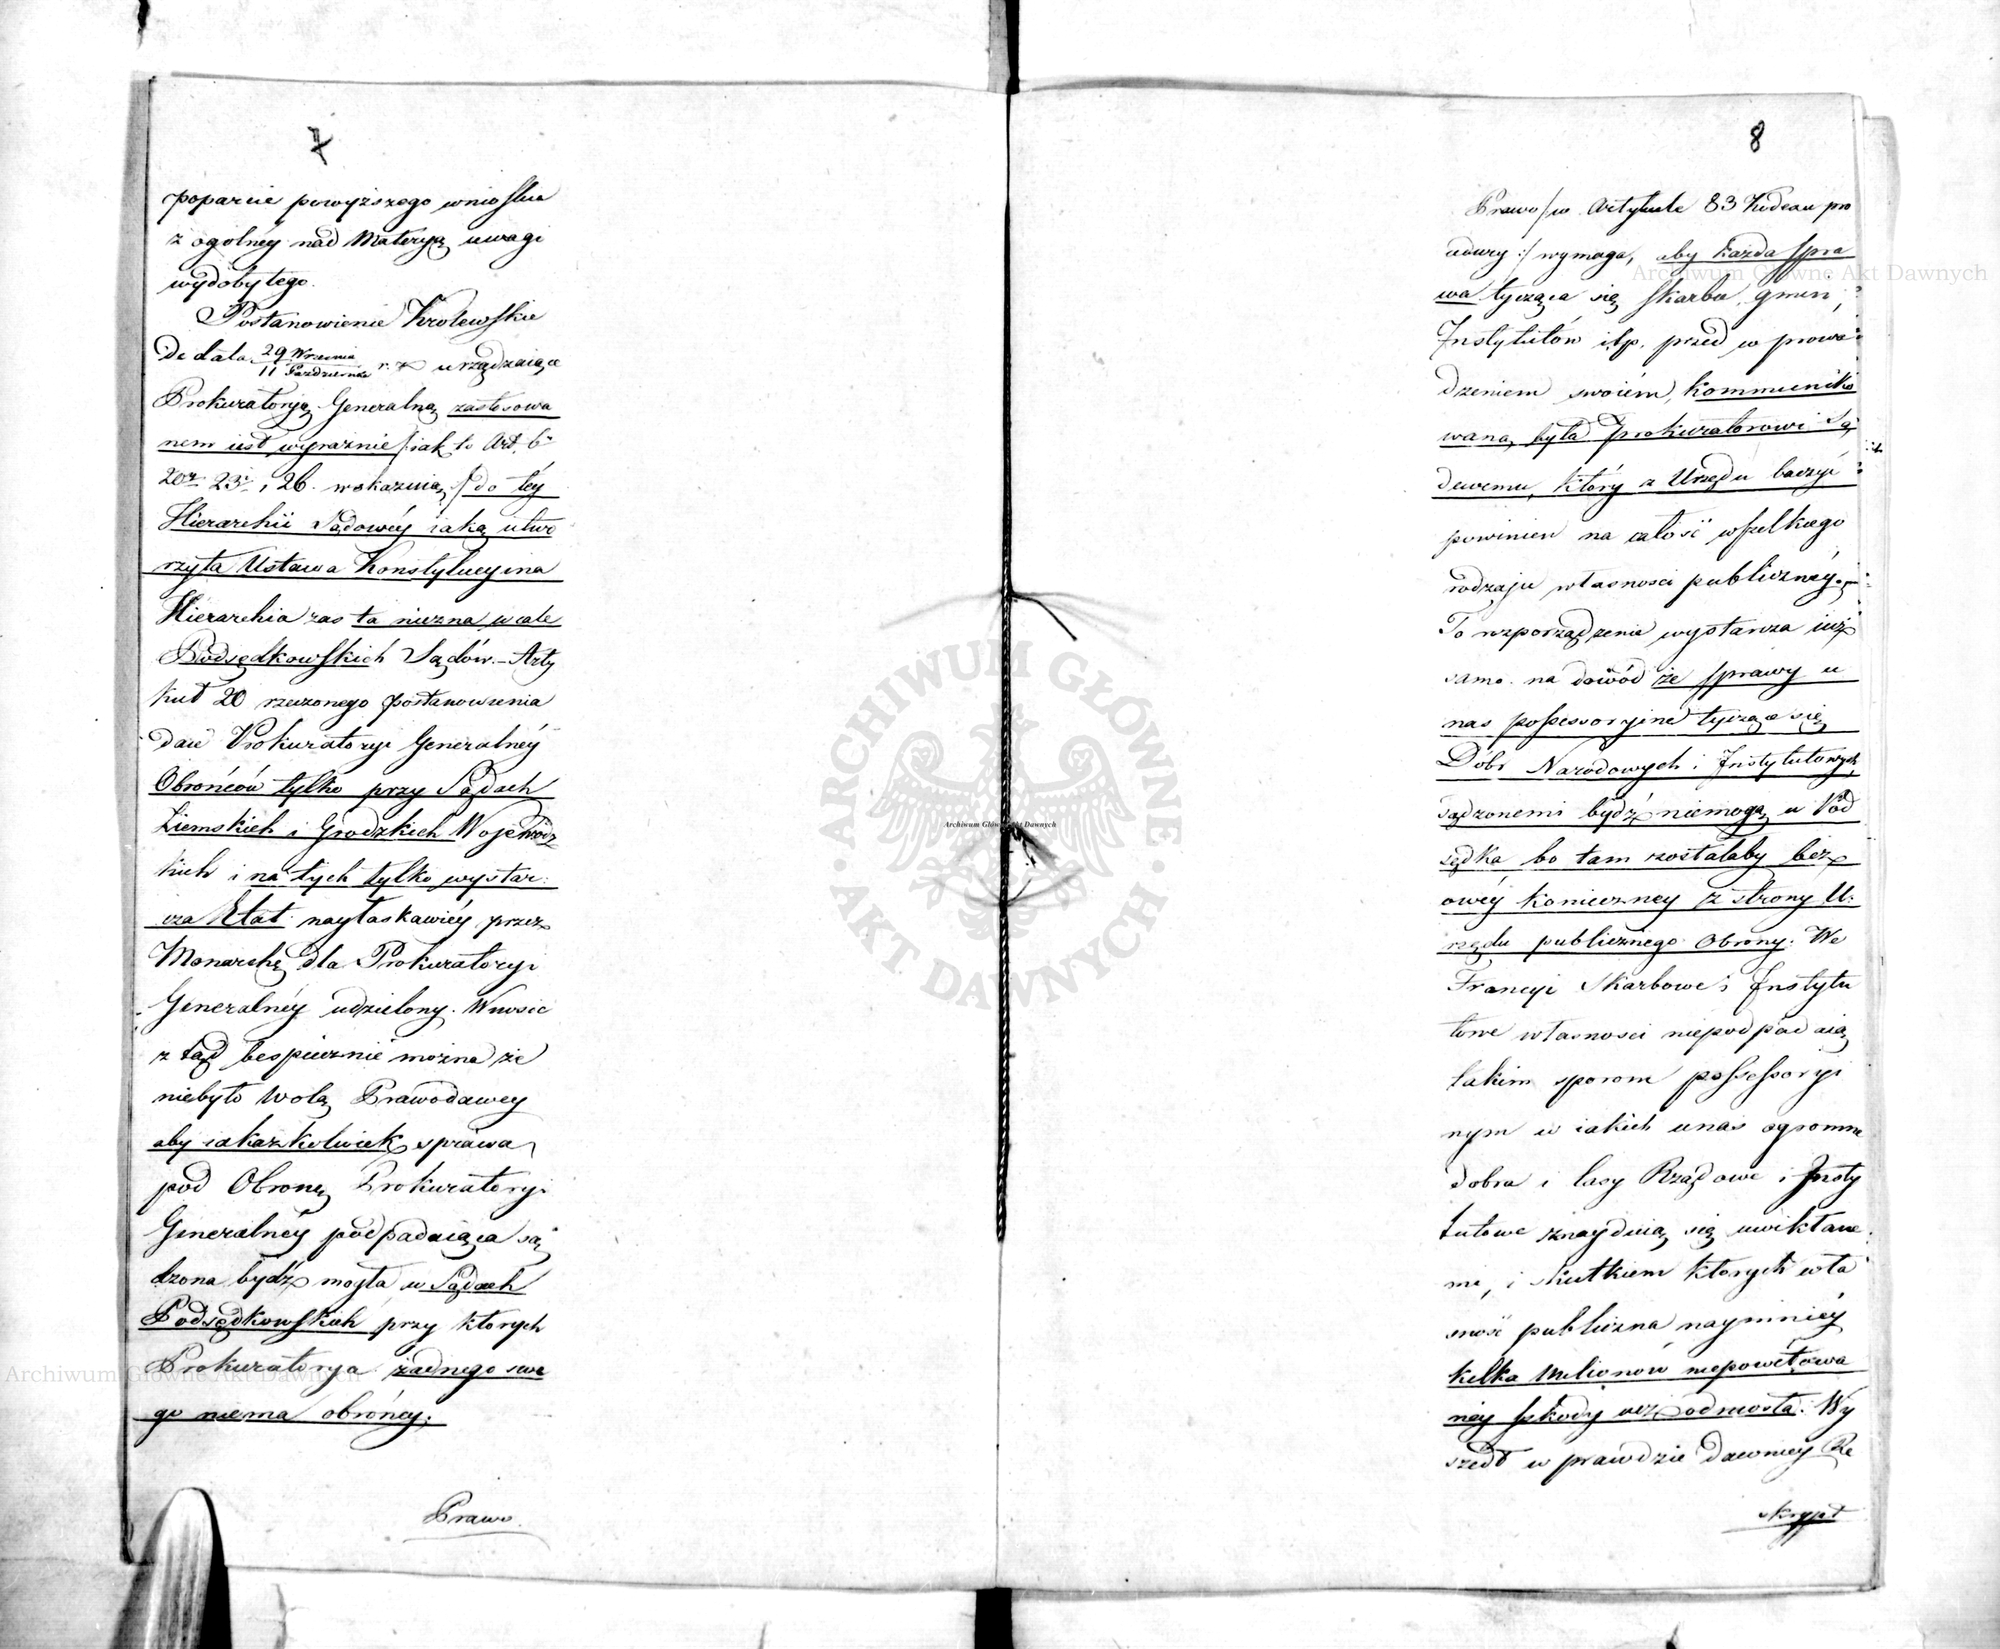 7
poparcie powyższego wniosku
z ogolnéy nad Materyą uwagi
wydobytego.
Postanowienie Krolewskie
de data 29 Września / 11 Października r. z urządzaiące
Prokuratoryą Generalną zastosowa
nem iest wyraźnie /: iak to Art. 6r
20r 23r i 26. wskazuią :/ do téy
Hierarchii Sądowéy iaką utwo
rzyła Ustawa Konstytucyina
Hierarchia zas ta niezna wcale
Podsędkowskich Sądów. – Arty
kuł 20 rzeczonego postanowienia
daie Prokuratoryi Generalnéy
Obrońców tylko przy Sądach
Ziemskich i Grodzkich Wojewódz
kich i na tych tylko wystar:
cza Etat nayłaskawiéy przez
Monarchę dla Prokuratoryi
Generalnéy udzielony. Wnosic
z tąd bespiecznie można że
niebyło wolą Prawodawcy
aby iakażkolwiek sprawa
pod Obronę Prokuratoryi
Generalnéy podpadaiąca są
dzona bydź mogła w Sądach
Podsędkowskich przy ktorych
Prokuratorya żadnego swe
go niema obrońcy.
Prawo.
8
Prawo /: w Artykule 83 Kodexu pro
cedury :/ wymaga, aby każda spra
wa tycząca się skarbu, gmin,
Instytutów itp. przed w prowa
dzeniem swoiém, kommuniko
waną była prokuratorowi Są
dowemu, który z Urzędu baczyć
powinien na całość wszelkiego
rodzaju własnosci publicznéy.
To rozporządzenie wystarcza iuż
samo na dowód że sprawy u
nas possessoryine tyczące się
Dóbr Narodowych i Instytutowych,
sądzonemi bydź niemogą u Pod
sędka bo tam zostałaby bez
owéy konieczney z strony U:
rzędu publicznego Obrony. We
Francyi Skarbowe i Instytu
towe własnosci niepodpadaią
takim sporom possessoryi
nym w iakich unas ogromne
dobra i lasy Rządowe i Insty
tutowe znayduią się uwikłane
mi, i skutkiem których wła
sność publiczna naymniéy
kilka milionów niepowetowa
néy szkody iuż odniosła. Wy
szedł w prawdzie dawniey Re
skrypt
ARCHIWUM GŁÓWNE AKT DAWNYCH
Archiwum Główne Akt Dawnych
Archiwum Główne Akt Dawnych
Archiwum Główne Akt Dawnych